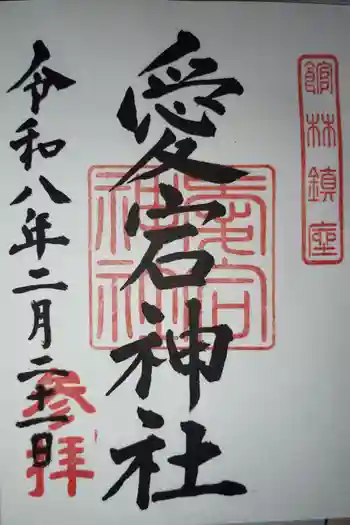 館林鎮座
愛宕神社
愛宕神社
令和八年二月二十一日
参拝